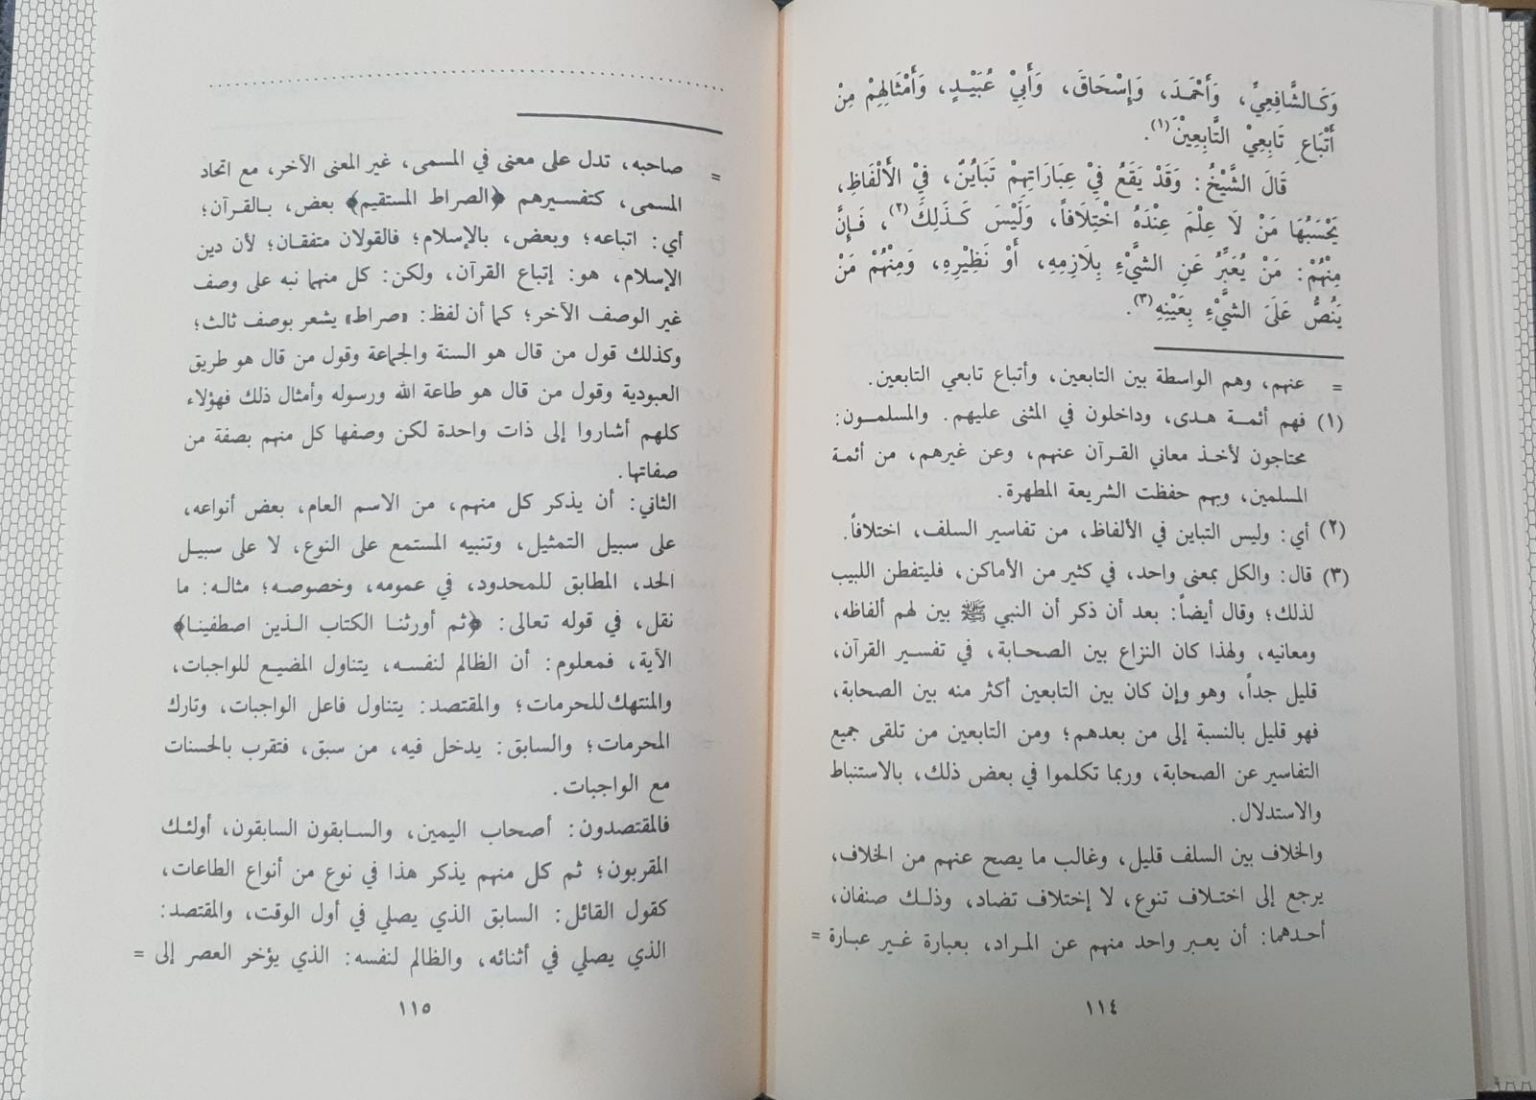 وَكَالشَّافِعِيِّ، وَأَحْمَدَ، وَإِسْحَاقَ، وَأَبِيْ عُبَيْدٍ، وَأَمْثَالِهِمْ مِنْ
أَتْبَاعِ تَابِعِيْ التَّابِعِيْنَ(١).
قَالَ الشَّيْخُ: وَقَدْ يَقَعُ فِيْ عِبَارَاتِهِمْ تَبَايُنٌ، فِيْ الْأَلْفَاظِ،
يَحْسَبُهَا مَنْ لَا عِلْمَ عِنْدَهُ اخْتِلَافاً، وَلَيْسَ كَذَلِكَ(٢)، فَإِنَّ
مِنْهُمْ: مَنْ يُعَبِّرُ عَنِ الشَّيْءِ بِلَازِمِهِ، أَوْ نَظِيْرِهِ، وَمِنْهُمْ مَنْ
يَنُصُّ عَلَى الشَّيْءِ بِعَيْنِهِ(٣).
= عنهم، وهم الواسطة بين التابعين، وأتباع تابعي التابعين.
(١) فهم أئمة هدى، وداخلون في المثنى عليهم. والمسلمون:
محتاجون لأخذ معاني القرآن عنهم، وعن غيرهم، من أئمة
المسلمين، وبهم حفظت الشريعة المطهرة.
(٢) أي: وليس التباين في الألفاظ، من تفاسير السلف، اختلافاً.
(٣) قال: والكل بمعنى واحد، في كثير من الأماكن، فليتفطن اللبيب
لذلك؛ وقال أيضاً: بعد أن ذكر أن النبي ﷺ بين لهم ألفاظه،
ومعانيه، ولهذا كان النزاع بين الصحابة، في تفسير القرآن،
قليل جداً، وهو وإن كان بين التابعين أكثر منه بين الصحابة،
فهو قليل بالنسبة إلى من بعدهم؛ ومن التابعين من تلقى جميع
التفاسير عن الصحابة، وربما تكلموا في بعض ذلك، بالاستنباط
والاستدلال.
والخلاف بين السلف قليل، وغالب ما يصح عنهم من الخلاف،
يرجع إلى اختلاف تنوع، لا إختلاف تضاد، وذلك صنفان،
أحدهما: أن يعبر واحد منهم عن المراد، بعبارة غير عبارة =
١١٤
= صاحبه، تدل على معنى في المسمى، غير المعنى الآخر، مع اتحاد
المسمى، كتفسيرهم ﴿الصراط المستقيم﴾ بعض، بالقرآن؛
أي: اتباعه؛ وبعض، بالإسلام؛ فالقولان متفقان؛ لأن دين
الإسلام، هو: إتباع القرآن، ولكن: كل منهما نبه على وصف
غير الوصف الآخر؛ كما أن لفظ: «صراط» يشعر بوصف ثالث؛
وكذلك قول من قال هو السنة والجماعة وقول من قال هو طريق
العبودية وقول من قال هو طاعة الله ورسوله وأمثال ذلك فهؤلاء
كلهم أشاروا إلى ذات واحدة لكن وصفها كل منهم بصفة من
صفاتها.
الثاني: أن يذكر كل منهم، من الاسم العام، بعض أنواعه،
على سبيل التمثيل، وتنبيه المستمع على النوع، لا على سبيل
الحد، المطابق للمحدود، في عمومه، وخصوصه؛ مثاله: ما
نقل، في قوله تعالى: ﴿ثم أورثنا الكتاب الذين اصطفينا﴾
الآية، فمعلوم: أن الظالم لنفسه، يتناول المضيع للواجبات،
والمنتهك للحرمات؛ والمقتصد: يتناول فاعل الواجبات، وتارك
المحرمات؛ والسابق: يدخل فيه، من سبق، فتقرب بالحسنات
مع الواجبات.
فالمقتصدون: أصحاب اليمين، والسابقون السابقون، أولئك
المقربون؛ ثم كل منهم يذكر هذا في نوع من أنواع الطاعات،
كقول القائل: السابق الذي يصلي في أول الوقت، والمقتصد:
الذي يصلي في أثنائه، والظالم لنفسه: الذي يؤخر العصر إلى =
١١٥